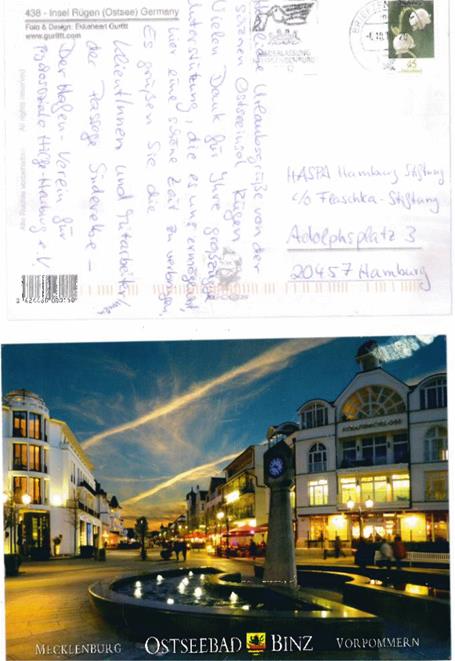 438 - Insel Rügen (Ostsee) Germany
Foto & Design: Ekkeheart Gurlitt
www.gurlitt.com
Alle Rechte vorbehalten
All rights reserved
Urlaubsgrüße von der
Ostseeinsel Rügen
Vielen Dank für Ihre großzügige
Unterstützung, die es uns ermöglicht,
hier eine schöne Zeit zu verbringen.
Es grüßen Sie die
KlientInnen und Mitarbeiter/innen
der Passage Süderelbe –
Der Hafen Verein für
psychosoziale Hilfe Harburg e.V.
BRIEFZEN
45
HASPA Hamburg Stiftung
c/o Flaschka-Stiftung
Adolphsplatz 3
20457 Hamburg
MECKLENBURG OSTSEEBAD BINZ VORPOMMERN